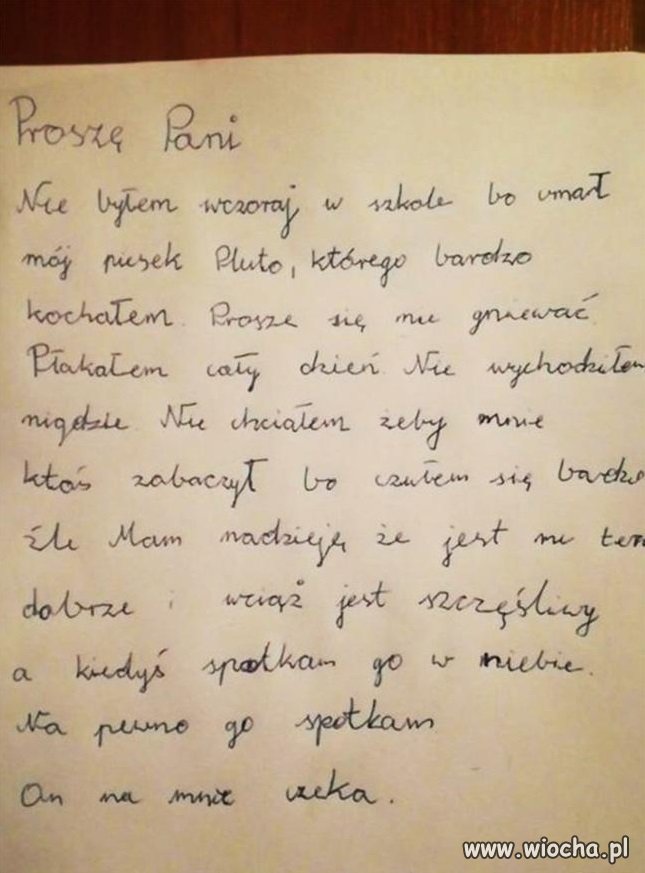 Proszę Pani
Nie byłem wczoraj w szkole bo umarł
mój piesek Pluto, którego bardzo
kochałem. Prosze się nie gniewać
Płakałem cały dzień. Nie wychodziłem
nigdzie. Nie chciałem żeby mnie
ktoś zabaczył bo czułem się bardzo
źle Mam nadzieję że jest mu tera
dobrze i wciąż jest szczęśliwy
a kiedyś spotkam go w niebie.
Na pewno go spotkam
On na mnie czeka.
www.wiocha.pl